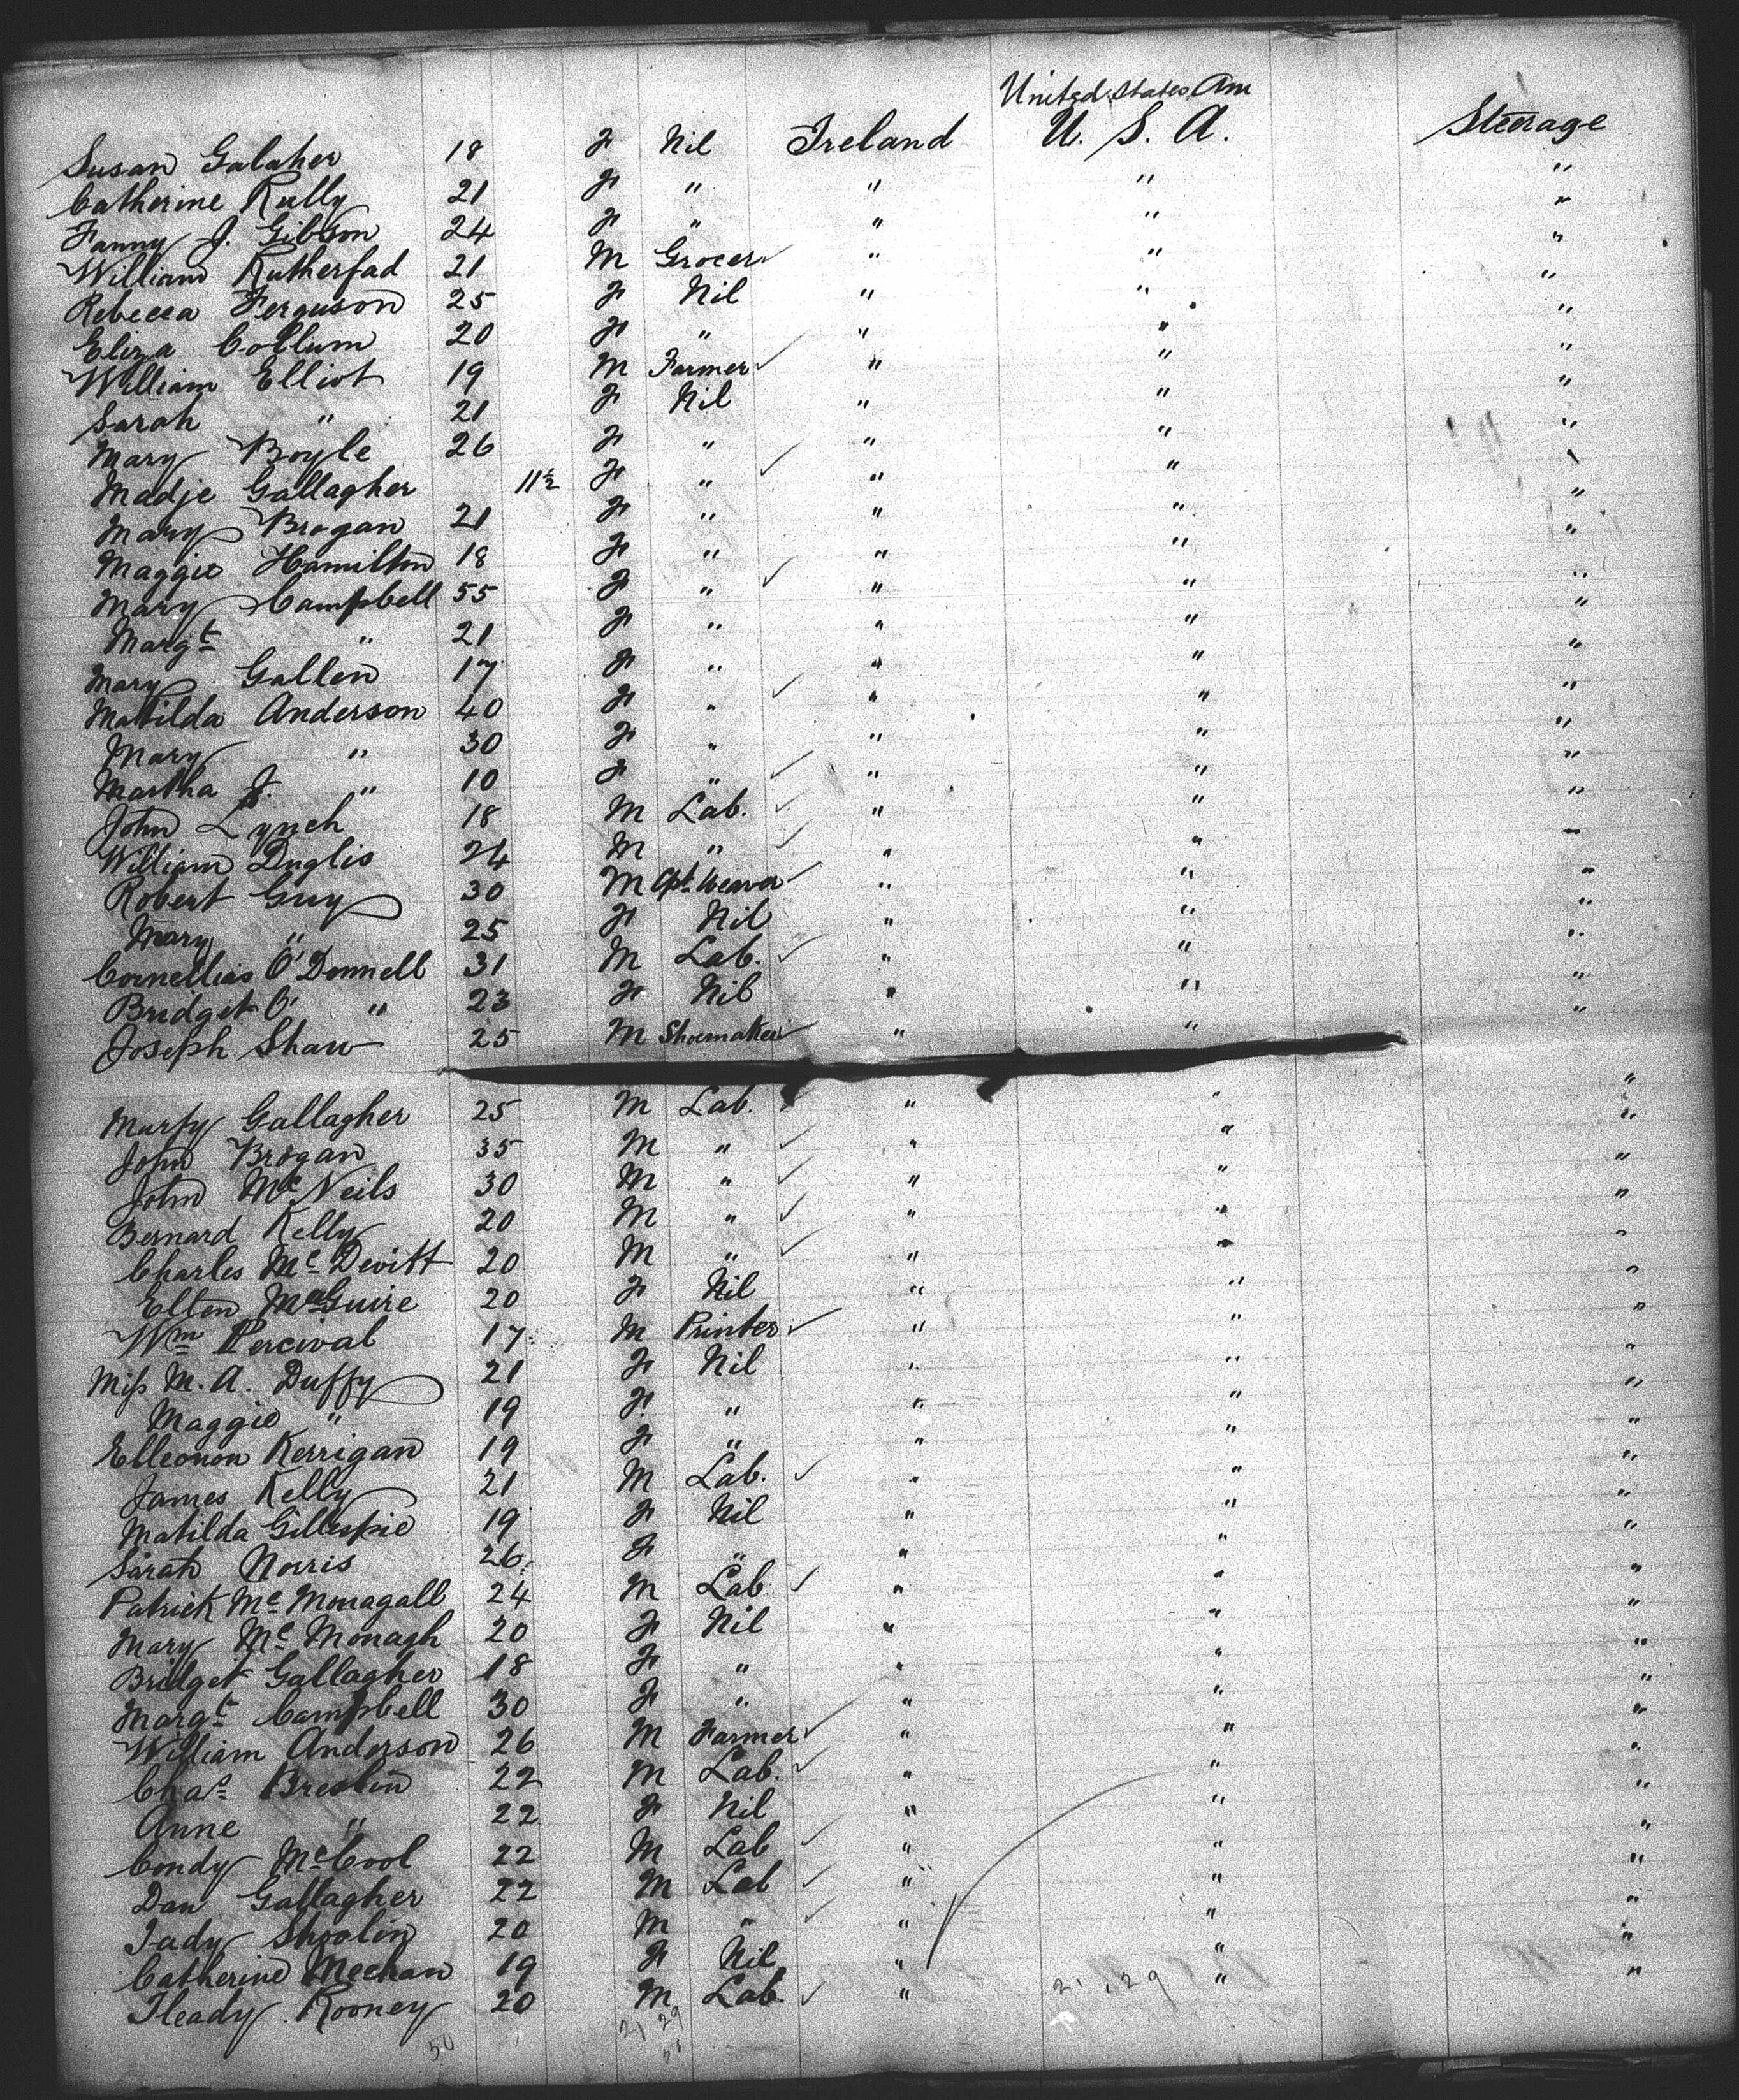 United States Am
Susan Galaher 18 F Nil Ireland U. S. A. Steerage
Catherine Kelly 21 F " " " "
Fanny J. Gibson 24 F " " " "
William Rutherfad 21 M Grocer " " "
Rebecca Ferguson 25 F Nil " " "
Eliza Collum 20 F " " " "
William Elliot 19 M Farmer " " "
Sarah " 21 F Nil " " "
Mary Boyle 26 F " " " "
Madje Gallagher 11½ F " " " "
Mary Brogan 21 F " " " "
Maggie Hamilton 18 F " " " "
Mary Campbell 55 F " " " "
Margt " 21 F " " " "
Mary Gallen 17 F " " " "
Matilda Anderson 40 F " " " "
Mary " 30 F " " " "
Martha J. " 10 F " " " "
John Lynch 18 M Lab. " " "
William 24 M " " " "
Robert Guy 30 M " " "
Mary " 25 F Nil " " "
Cornellias O'Donnell 31 M Lab. " " "
Bridget O' " 23 F Nil " " "
Joseph Shaw 25 M Shoemaker " " "
Murfy Gallagher 25 M Lab. " " "
John Brogan 35 M " " " "
John Mc Neils 30 M " " " "
Bernard Kelly 20 M " " " "
Charles Mc Devitt 20 M " " " "
Ellen MaGuire 20 F Nil " " "
Wm Percival 17 M Printer " " "
Miss M. A. Duffy 21 F Nil " " "
Maggie " 19 F " " " "
Elleonon Kerrigan 19 F " " " "
James Kelly 21 M Lab. " " "
Matilda Gillespie 19 F Nil " " "
Sarah Norris 26 F " " " "
Patrick Mc Monagall 24 M Lab " " "
Mary Mc Monagh 20 F Nil " " "
Bridget Gallagher 18 F " " " "
Margt Campbell 30 F " " " "
William Anderson 26 M Farmer " " "
Chas Breslin 22 M Lab. " " "
Anne " 22 F Nil " " "
Condy McCool 22 M Lab " " "
Dan Gallagher 22 M Lab " " "
Tady Shoolin 20 M " " " "
Catherine Meehan 19 F Nil " " "
Tleady Rooney 20 M Lab. " " "
21 29
50 21 29